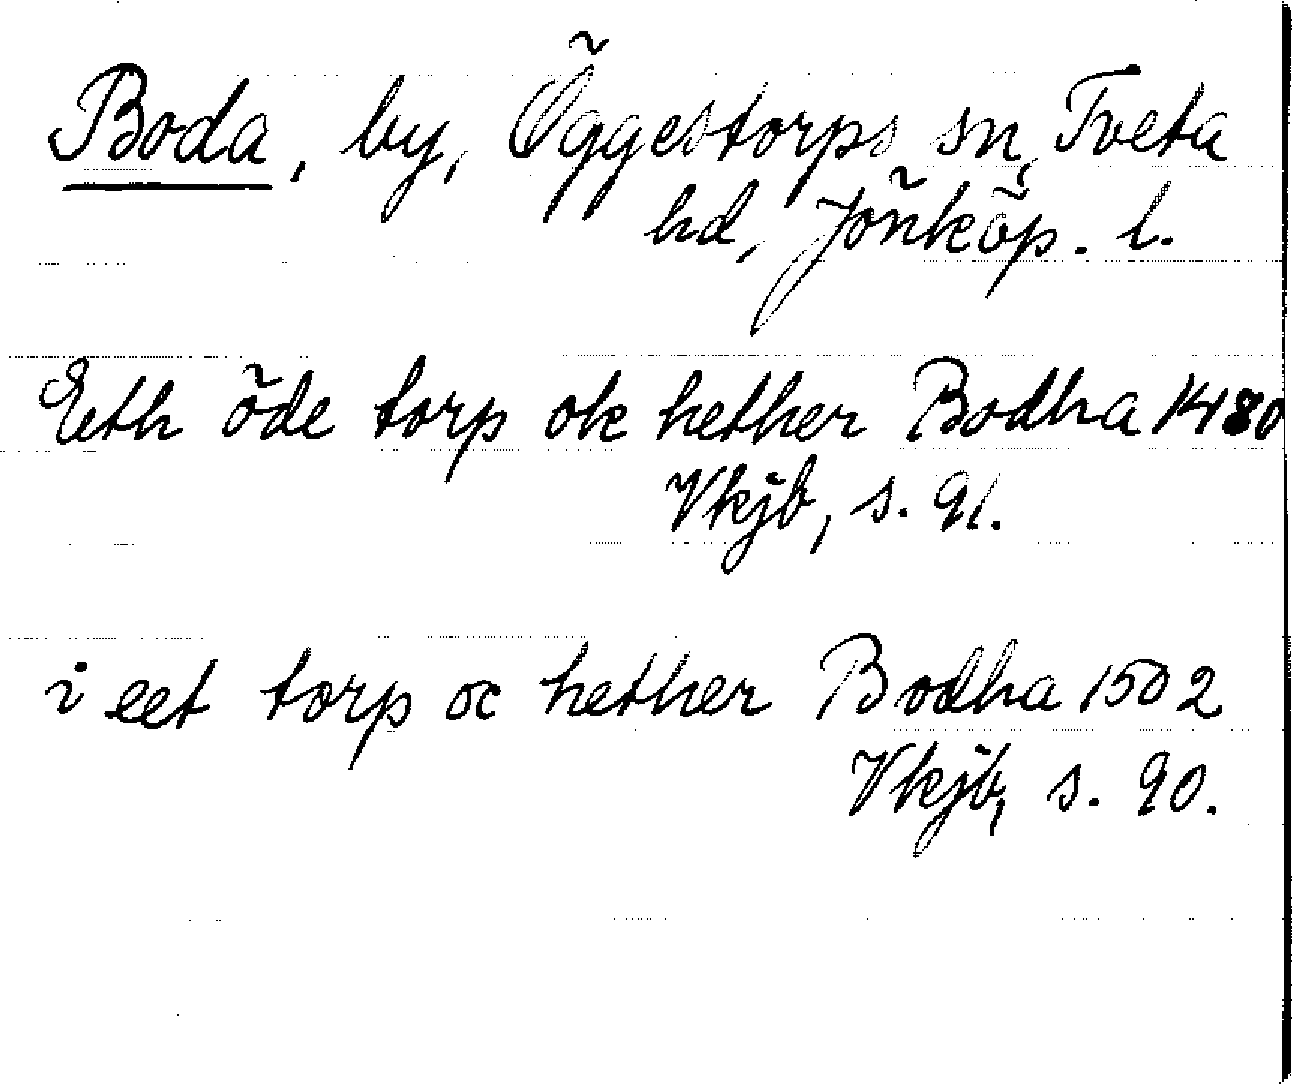 Boda, by, Öggestorps sn, Tveta
hd, Jönköp. l.
Eth öde torp ok hether Bodha 1480
Vkjb, s. 91.
i eet torp oc hether Bodha 1502
Vkjb, s. 90.